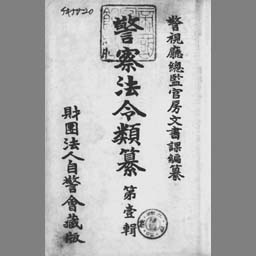 警視廳總監官房文書課編纂
警察法令類纂 第壹輯
財團法人自警會藏版